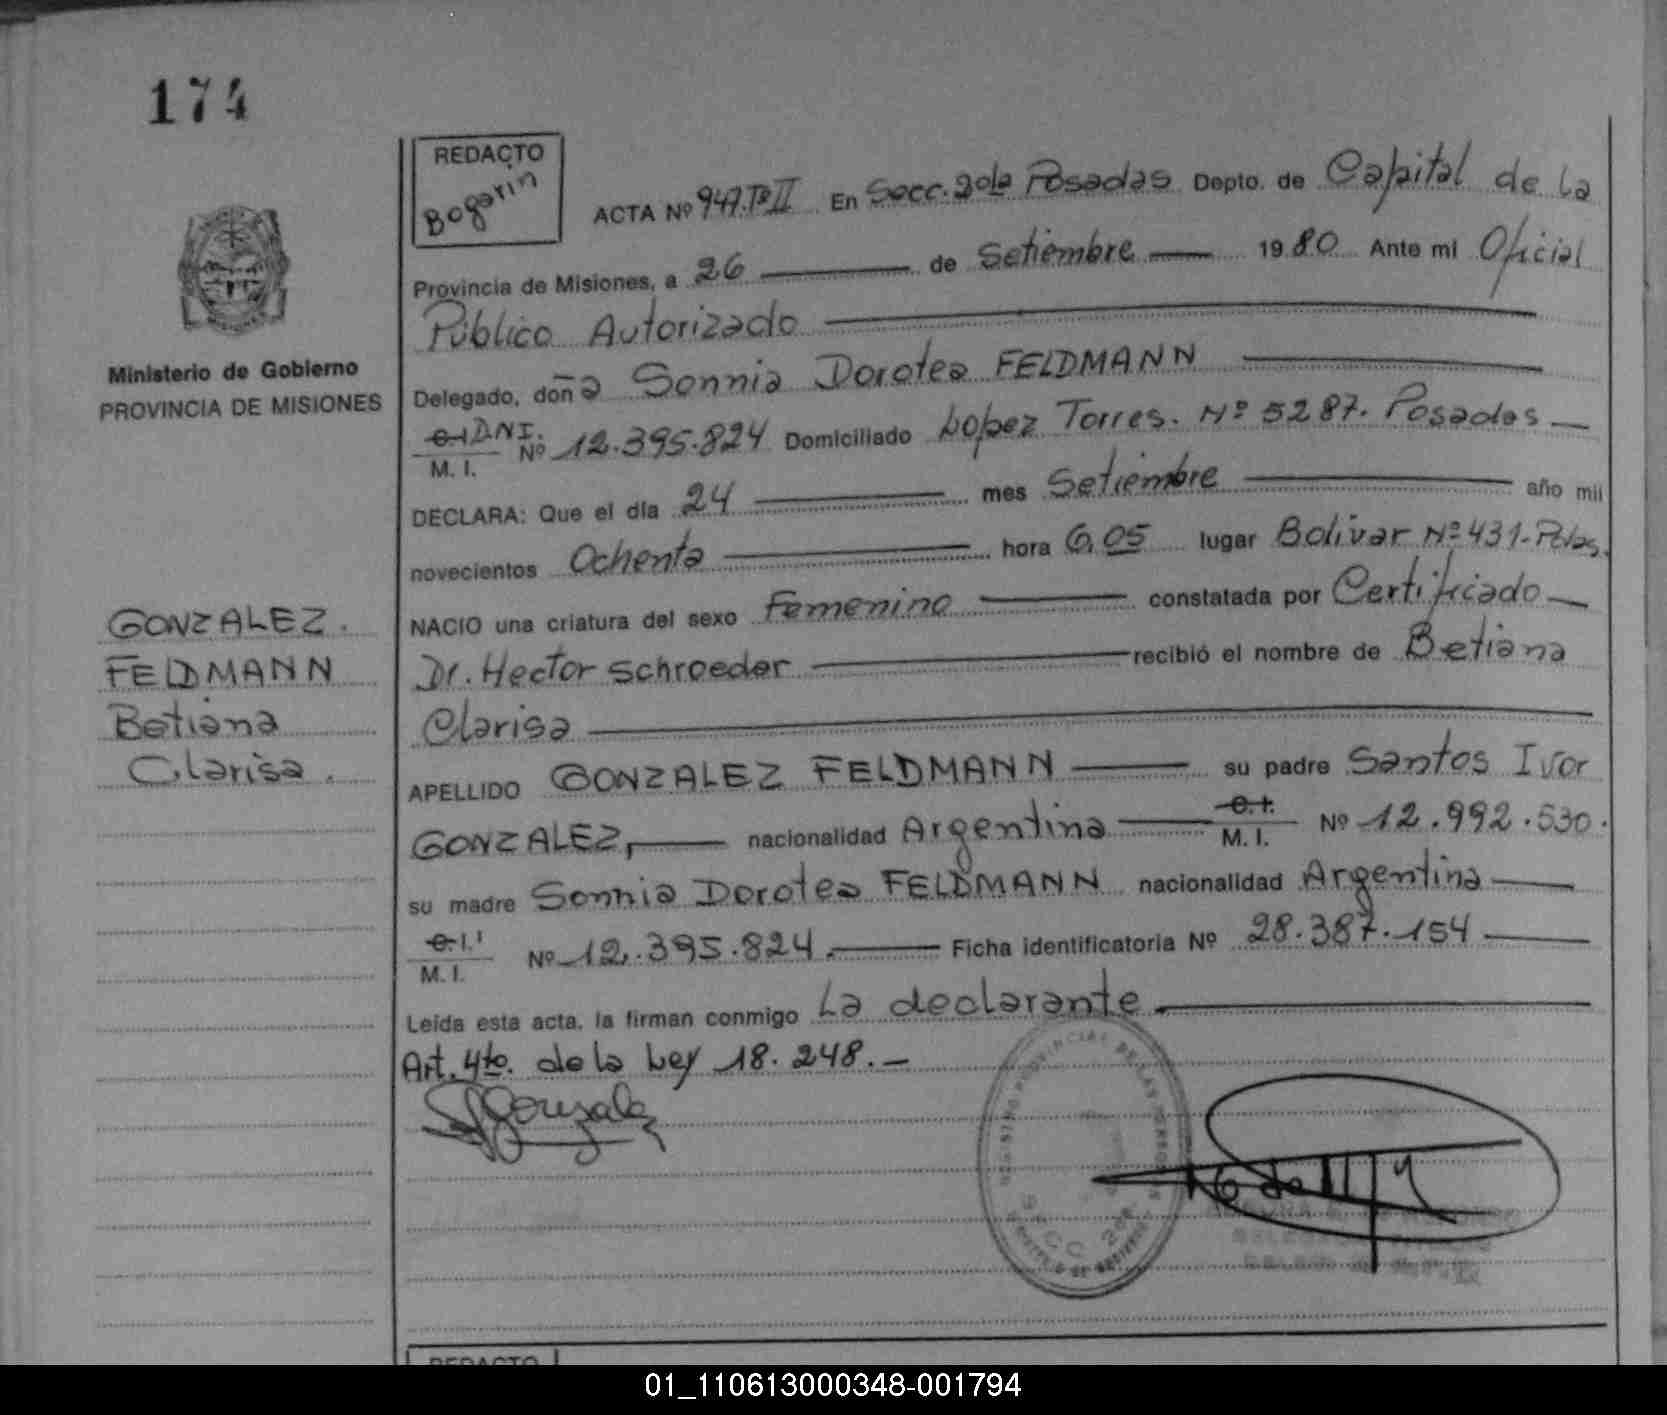 174
REDACTO
Bogarin
ACTA Nº 947.Tº II En Secc. 2da Posadas Depto. de Capital de la
Provincia de Misiones, a 26 de Setiembre 1980 Ante mi Oficial
Público Autorizado
Ministerio de Gobierno
PROVINCIA DE MISIONES
Delegado, doña Sonnia Dorotea FELDMANN
C.I D.N.I.
M. I. Nº 12.395.824 Domiciliado Lopez Torres. Nº 5287. Posadas
DECLARA: Que el día 24 mes Setiembre año mil
novecientos Ochenta hora 6,05 lugar Bolívar Nº 431-Pdas.
NACIO una criatura del sexo Femenino constatada por Certificado
Dr. Hector Schroeder recibió el nombre de Betiana
Clarisa
GONZALEZ.
FELDMANN
Betiana
Clarisa.
APELLIDO GONZALEZ FELDMANN su padre Santos Ivor
GONZALEZ, nacionalidad Argentina C.I. M. I. Nº 12.992.530.
su madre Sonnia Dorotea FELDMANN nacionalidad Argentina
C.I. M. I. Nº 12.395.824. Ficha identificatoria Nº 28.387.154
Leída esta acta, la firman conmigo La declarante
Art. 4to. de la Ley 18.248.-
REGISTRO PROVINCIAL DE LAS PERSONAS
SECC 2da
REDACTO
01_110613000348-001794